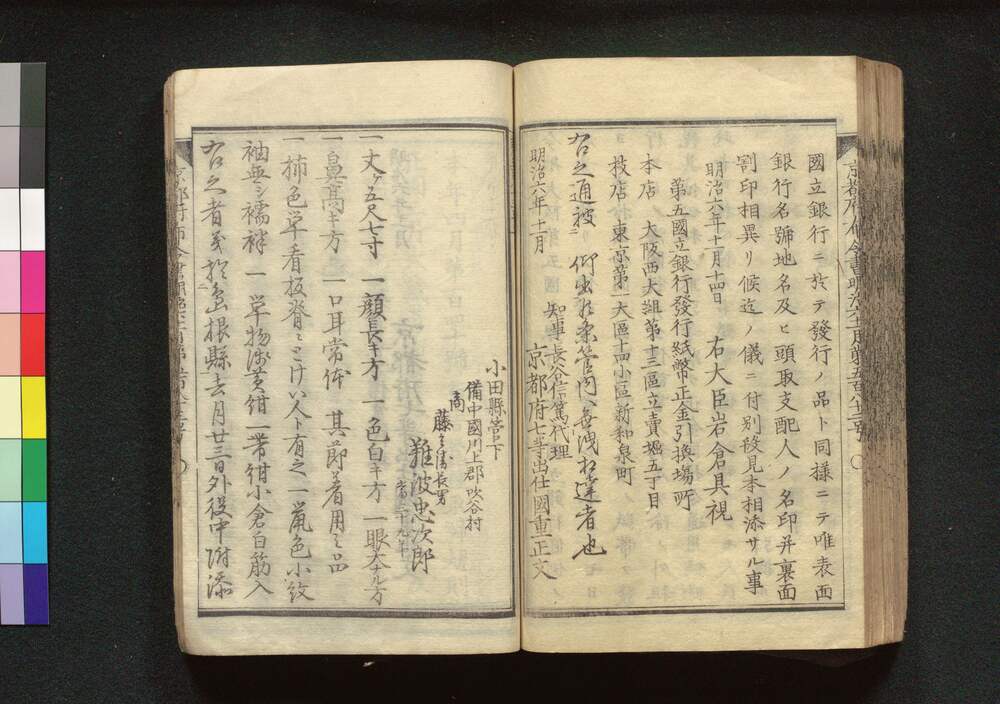 國立銀行ニ於テ發行ノ品ト同樣ニテ唯表面
銀行名號地名及ヒ頭取支配人ノ名印并裏面
割印相異リ候迄ノ儀ニ付別段見本相添サル事
明治六年十一月十四日 右大臣岩倉具視
第五國立銀行發行紙幣正金引換場所
本店 大阪西大組第十三區立賣堀五丁目
支店 東京第一大區十四小區新和泉町
右之通被仰出候条管内無洩相達者也
明治六年十一月 知事長谷信篤代理
京都府七等出仕國重正文
小田縣管下
備中國川上郡吹谷村
商
長男
難波忠次郎
一丈ケ五尺七寸 一顔長キ方 一色白キ方 一眼大ナル方
一鼻高キ方 一口耳常体 其節着用之品
一柿色単看板脊ニとけい人ト有之 一鼠色小紋
袖無シ襦袢 一単物浅黄紺 一帯紺小倉白筋入
右之者義於島根縣去月廿三日外役中附添